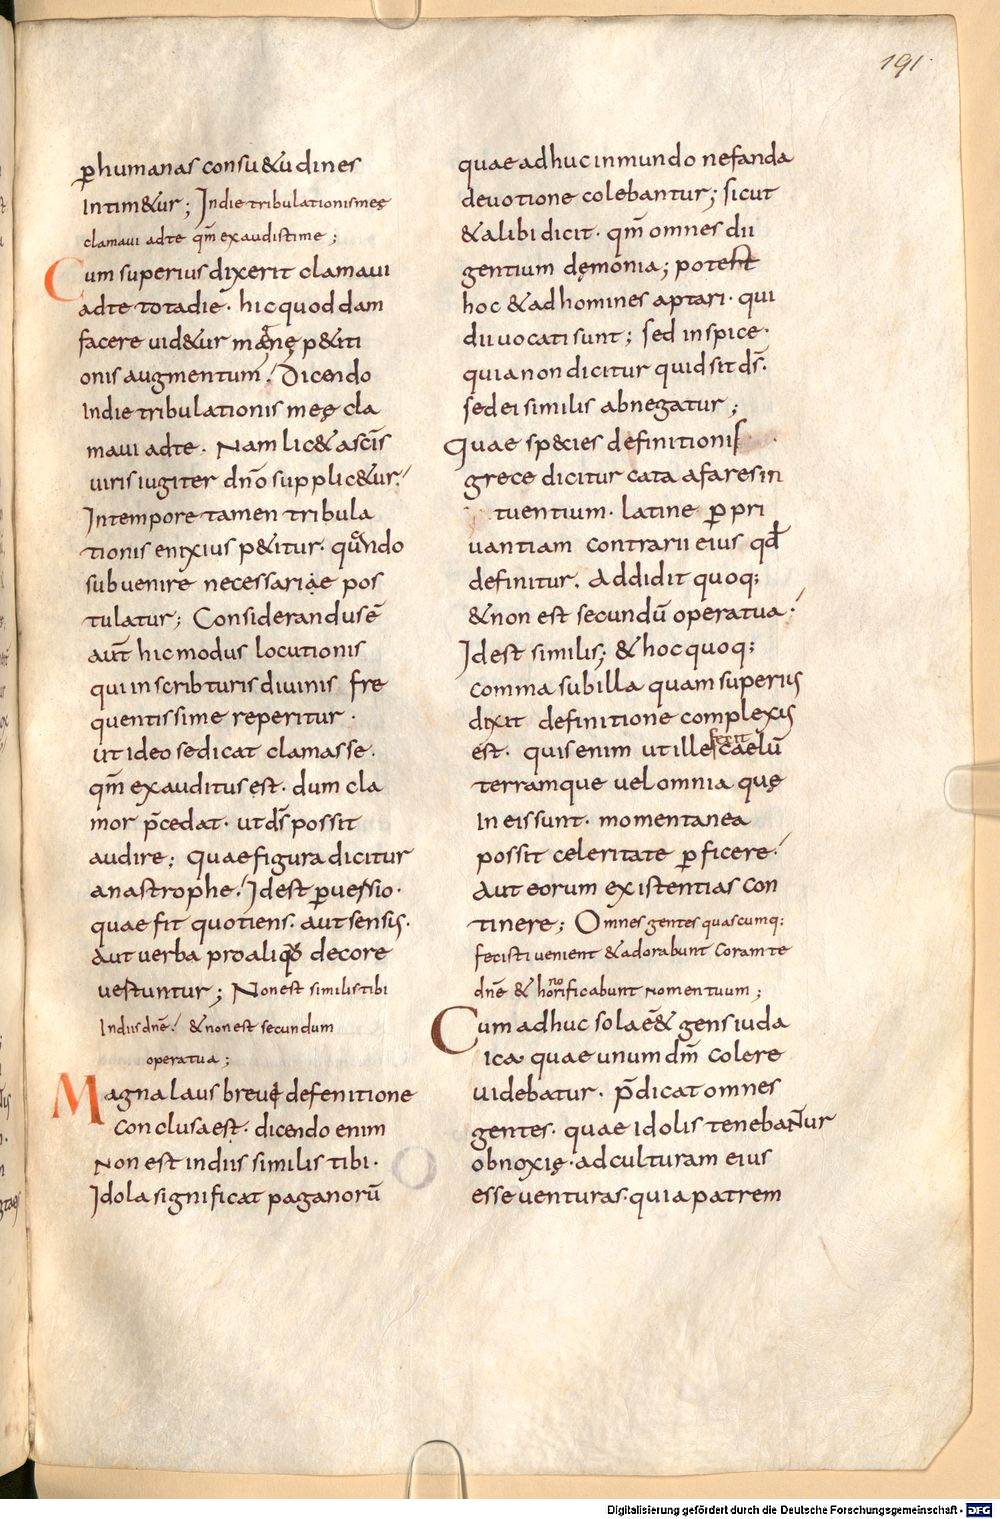 191
ꝑ humanas consu&udines
Intim&ur; In die tribulationis meę
clamaui ad te qm̄ exaudistime;
Cum superius dixerit clamaui
ad te tota die· hic quoddam
facere uid&ur męnę p&iti
onis augmentum! Dicendo
In die tribulationis meę cla
maui ad te· Nam lic& a sc̄is
uiris iugiter dn̄o supplic&ur!
In tempore tamen tribula
tionis enixius p&itur· quando
subuenire necessariae pos
tulatur; Considerandus ē
aut̄ hic modus locutionis
qui in scribturis diuinis fre
quentissime reperitur·
ut ideo se dicat clamasse·
qm̄ exauditus est· dum cla
mor p̄cedat· ut ds̄ possit
audire; Quae figura dicitur
anastrophe! Id est ꝑuersio·
quae fit quotiens· aut sensis·
Aut uerba pro aliquo decore
uestuntur; Non est similis tibi
In diis dn̄e! & non est secundum
opera tua;
Magna laus breue defenitione
conclusa est· dicendo enim
Non est in diis similis tibi·
Idola significat paganorū
quae adhuc in mundo nefanda
deuotione colebantur; sicut
& alibi dicit· qm̄ omnes dii
gentium dęmonia; potest
hoc & ad homines aptari· qui
dii uocati sunt; sed inspice·
quia non dicitur quid sit ds̄·
sed ei similis abnegatur;
Quae species definitionis
grece dicitur cata afaresin
tu entium· latine ꝑ pri
uantiam contrarii eius qd̄
definitur. Addidit quoq;
& non est secundū opera tua!
Id est similis; & hoc quoq;
comma sub illa quam superius
dixit definitione complexis
est· quis enim ut ille caelū
fecit
terramque uel omnia quę
In eis sunt· momentanea
possit celeritate ꝑficere!
Aut eorum existentias con
tinere; Omnes gentes quascumq;
fecisti uenient & adorabunt coram te
dn̄e & honorificabunt nomen tuum;
Cum adhuc sola ē& gens iuda
ica quae unum dm̄ colere
uidebatur· p̄dicat omnes
gentes· quae idolis tenebantur
obnoxię· ad culturam eius
esse uenturas· quia patrem
Digitalisierung gefördert durch die Deutsche Forschungsgemeinschaft - DFG